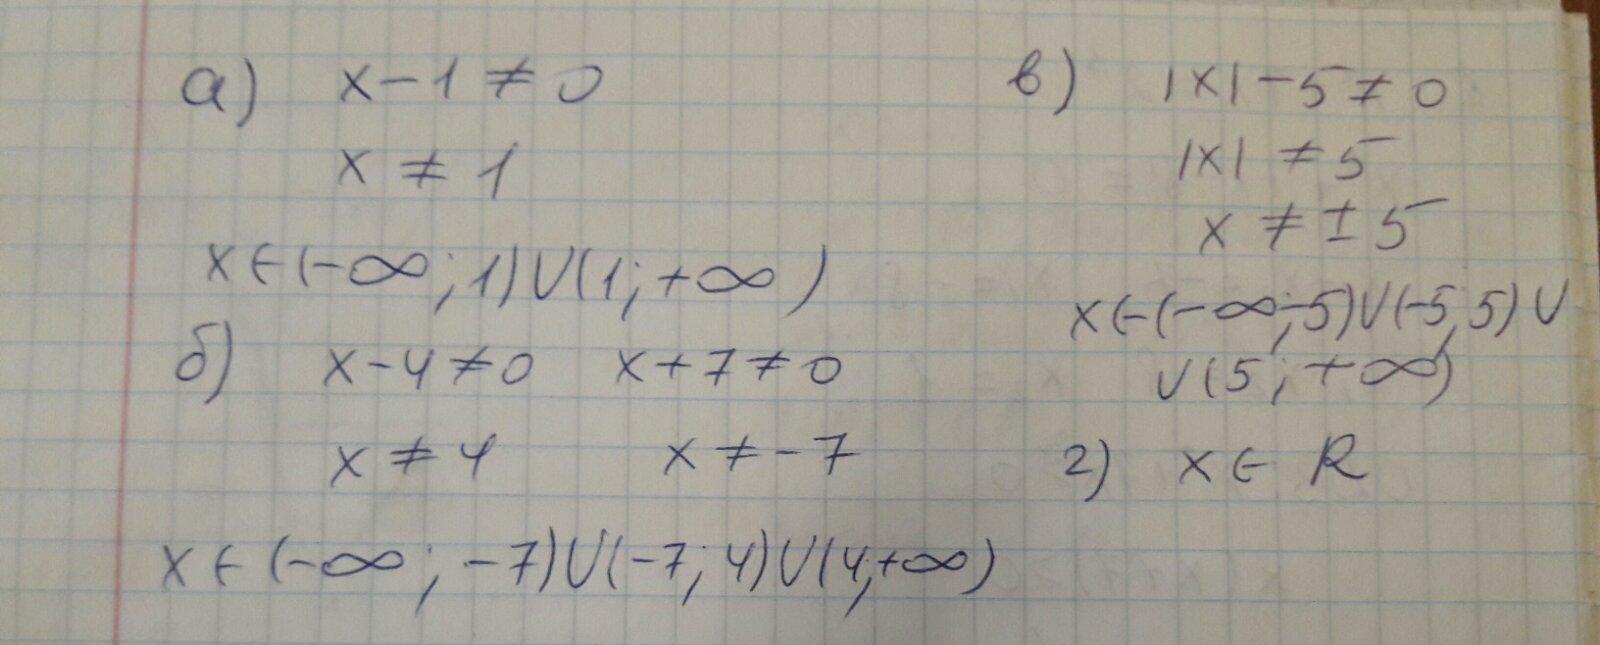 а) x - 1 ≠ 0
x ≠ 1
x ∈ (-∞; 1) ∪ (1; +∞)
б) x - 4 ≠ 0 x + 7 ≠ 0
x ≠ 4 x ≠ -7
x ∈ (-∞; -7) ∪ (-7; 4) ∪ (4; +∞)
в) |x| - 5 ≠ 0
|x| ≠ 5
x ≠ ± 5
x ∈ (-∞; -5) ∪ (-5; 5) ∪
∪ (5; +∞)
г) x ∈ R